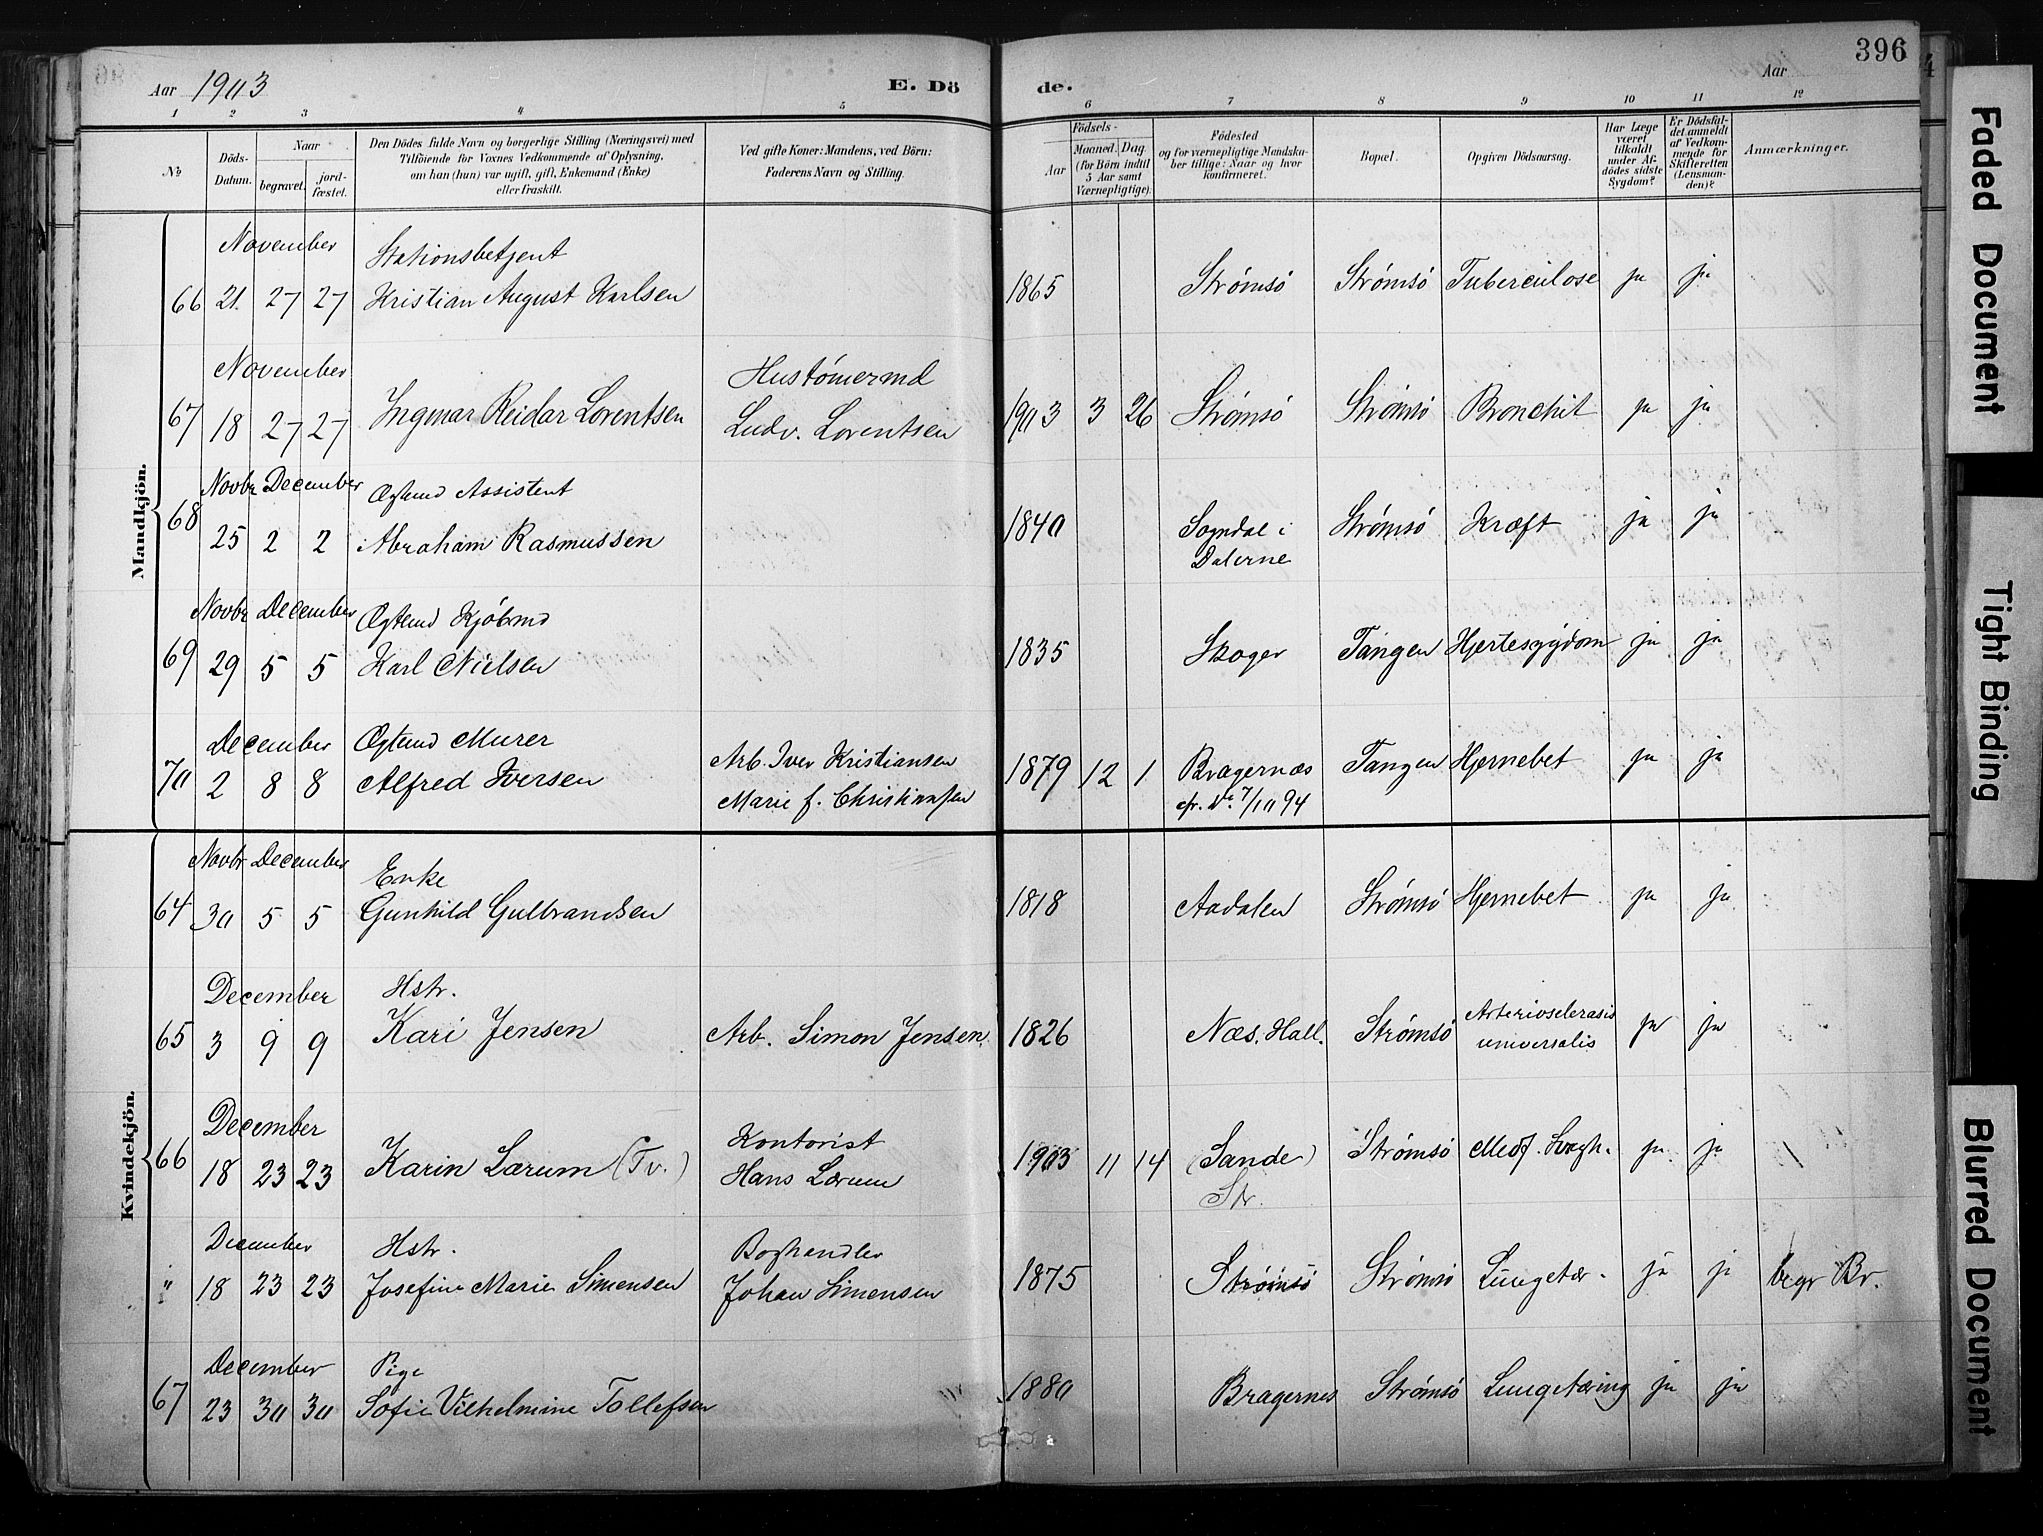 Aar 1903
E. Dö
de.
Aar
396
1 2 3 4 5 6 7 8 9 10 11 12
No
Döds-Datum.
Naar
begravet.
jord-fæstet.
Den Dödes fulde Navn og borgerlige Stilling (Næringsvei) med
Tilföiende for Voxnes Vedkommende af Oplysning,
om han (hun) var ugift, gift, Enkemand (Enke)
eller fraskilt.
Ved gifte Koner: Mandens, ved Börn:
Faderens Navn og Stilling.
Födsels-
Aar
Maaned. Dag.
(for Börn indtil
5 Aar samt
Værnepligtige).
Födested
og for værnepligtige Mandska-
ber tillige: Naar og hvor
konfirmeret.
Bopæl.
Opgiven Dödsaarsag.
Har Læge
været
tilkaldt
under Af-
dödes sidste
Sygdom?
Er Dödsfal-
det anmeldt
af Vedkom-
mende for
Skifteretten
(Lensman-
den)?
Anmærkninger.
Mandkjön.
November Stationsbetjent
66 21. 27 27 Kristian August Karlsen 1865 Strømsø Strømsø Tuberculose ja ja
November Hustømermd
67 18 27 27 Ingmar Reidar Lorentsen Ludv. Lorentsen 1903 3 26 Strømsø Strømsø Bronchit ja ja
Novbr December Ægtemd Assistent
68 25 2 2 Abraham Rasmussen 1840 Sogndal i Dalerne Strømsø Kræft ja ja
Novbr December Ægtemd Kjøbmd
69 29 5 5 Karl Nielsen 1835 Skoger Tangen Hjertesygdom ja ja
December Ægtemd Murer Arb. Iver Kristiansen
70 2 8 8 Alfred Iversen Marie f. Christiansen 1879 12 1 Bragernæs Tangen Hjernebet ja ja
7/10 94
Kvindekjön.
Novbr December Enke
64 30 5 5 Gunhild Gulbrandsen 1818 Aadalen Strømsø Hjernebet ja ja
December Hstr.
65 3 9 9 Kari Jensen Arb. Simon Jensen. 1826 Næs. Hall. Strømsø Arteriosclerasis universalis ja ja
December Kontorist
66 18 23 23 Karin Lærum (Tv.) Hans Lærum 1903 11 14 (Sande) Strømsø Medf. Svagh. ja ja
Str.
December Hstr. Boghandler
" 18 23 23 Josefine Marie Simensen Johan Simensen 1875 Strømsø Strømsø Lungetær. ja ja begr Br.
December Pige
67 23 30 30 Sofie Vilhelmine Tollefsen 1880 Bragernes Strømsø Lungetæring ja ja
Faded Document
Tight Binding
Blurred Document